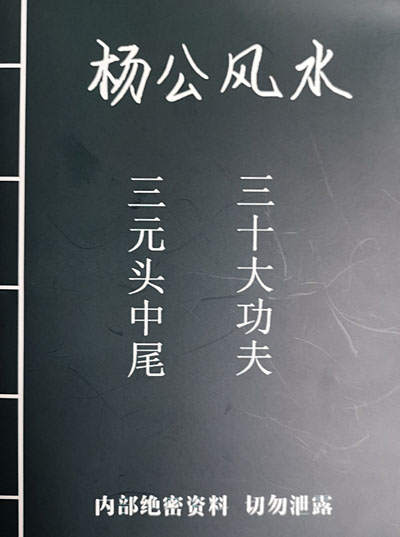 杨公风水
三十大功夫
三元头中尾
内部绝密资料 切勿泄露